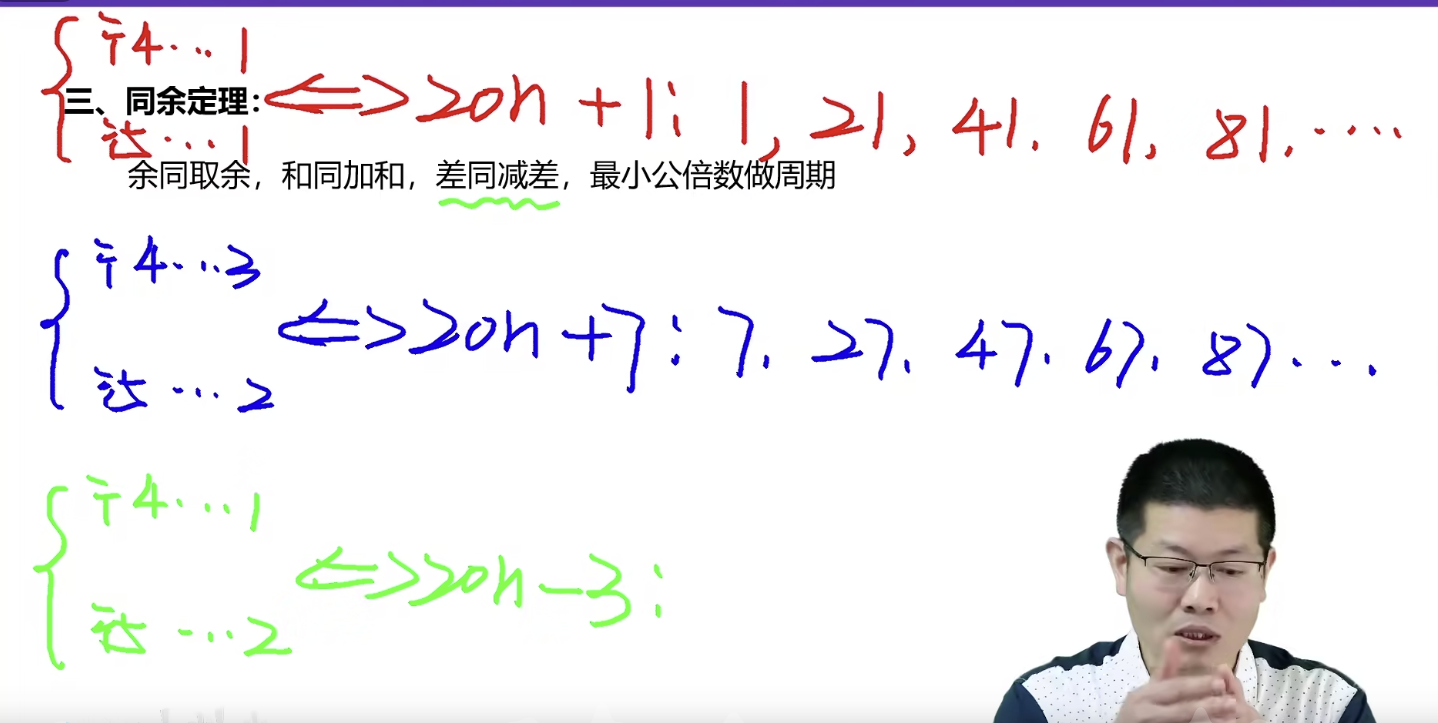 ÷4…1
三、同余定理：⟺ 20n + 1: 1, 21, 41, 61, 81, ……
÷5…1
余同取余，和同加和，差同减差，最小公倍数做周期
÷4…3
⟺ 20n + 7: 7, 27, 47, 67, 87…
÷5…2
÷4…1
⟺ 20n - 3:
÷5…2